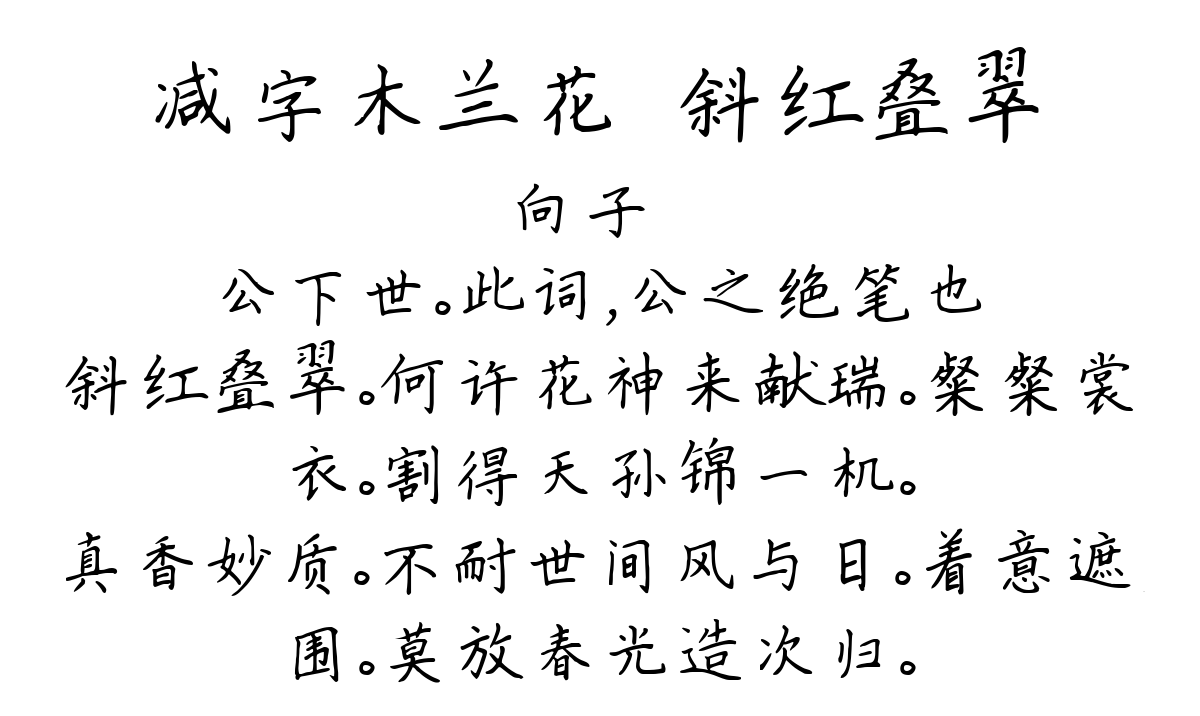 减字木兰花 斜红叠翠
向子
公下世。此词,公之绝笔也
斜红叠翠。何许花神来献瑞。粲粲裳
衣。割得天孙锦一机。
真香妙质。不耐世间风与日。着意遮
围。莫放春光造次归。